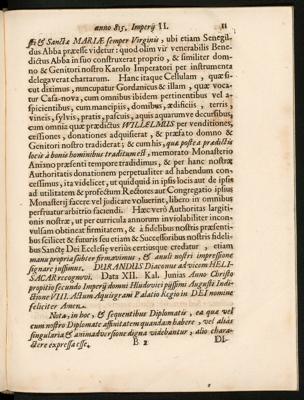 anno 815. Imperij II. 11
& Sanctæ MARIÆ semper Virginis, ubi etiam Senegil-
dus Abba præesse videtur: quod olim vir venerabilis Bene-
dictus Abba in suo construxerat proprio, & similiter dom-
no & Genitori nostro Karolo Imperatori per instrumenta
delegaverat chartarum. Hanc itaque Cellulam, quæ si-
cut diximus, nuncupatur Gordanicus & illam, quæ voca-
tur Casa-nova, cum omnibus ibidem pertinentibus vel a-
spicientibus, cum mancipiis, domibus, ædificiis, terris,
vineis, sylvis, pratis, pascuis, aquis aquarumve decursibus,
cum omnia quæ prædictus WILLELMUS per venditiones,
cessiones, donationes adquisierat, & præfato domno &
Genitori nostro tradiderat; & cum his, quæ postea prædictis
locis à bonis hominibus tradita sunt, memorato Monasterio
Aniano præsenti tempore tradidimus, & per hanc nostræ
Authoritatis donationem perpetualiter ad habendum con-
cessimus, ita videlicet, ut quidquid in ipsis locis aut de ipsis
ad utilitatem & profectum Rectores aut Congregatio ipsius
Monasterij facere vel judicare voluerint, libero in omnibus
perfruatur arbitrio faciendi. Hæc verò Authoritas largiti-
onis nostræ, ut per curricula annorum inviolabiliter incon-
vulsam obtineat firmitatem, & à fidelibus nostris præsenti-
bus scilicet & futuris seu etiam & Successoribus nostris fideli-
bus Sanctę Dei Ecclesię veriùs certiusque credatur, etiam
manu propria subter firmavimus, & anuli nostri impressione
signare jussimus. DURANDUS Diaconus ad vicem HELI-
SACAR recognovi. Data XII. Kal. Junias Anno Christo
propitio secundo Imperij domni Hludovici pijssimi Augusti Indi-
ctione VIII. Actum Aquisgrani Palatio Regio in DEI nomine
feliciter Amen.
Nota, in hoc, & sequentibus Diplomatis, ea quæ vel
cum nostro Diplomate affinitatem quandam habere, vel aliàs
singularia & animadversione digna videbantur, alio chara-
ctere expressa esse.
B 2 DI-